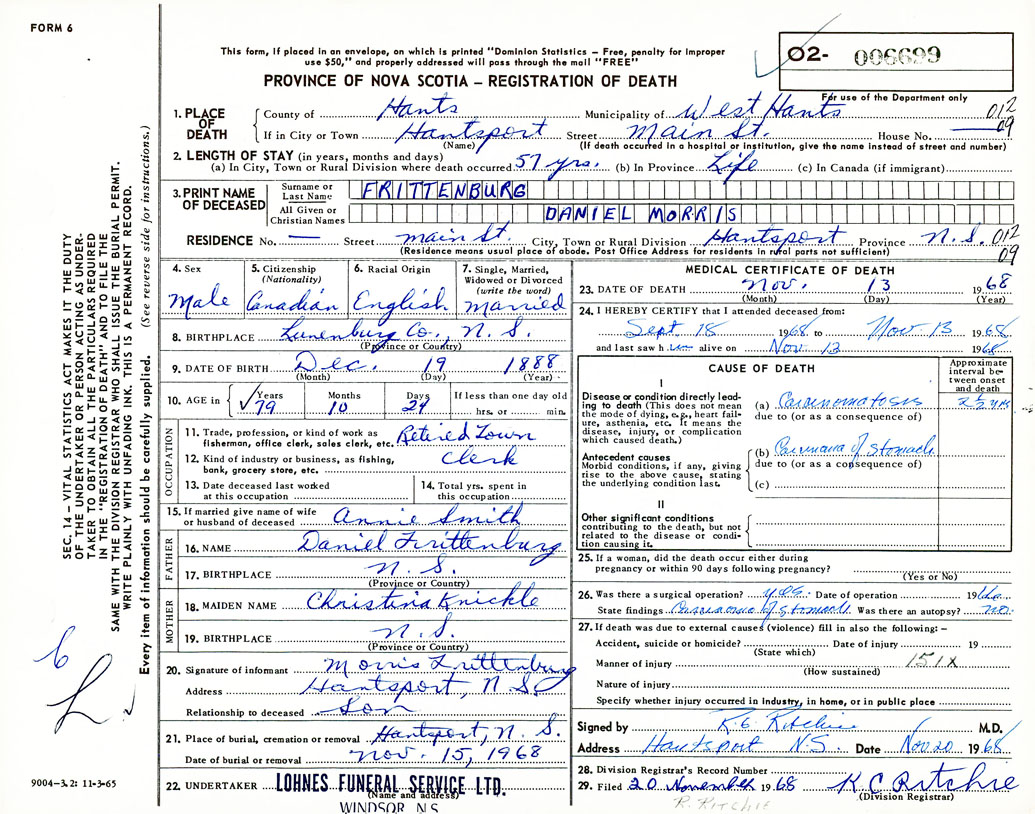 FORM 6
This form, if placed in an envelope, on which is printed "Dominion Statistics – Free, penalty for improper
use $50," and properly addressed will pass through the mail "FREE"
PROVINCE OF NOVA SCOTIA – REGISTRATION OF DEATH
O2- 006699
For use of the Department only
1. PLACE OF DEATH
County of Hants Municipality of West Hants 012
If in City or Town Hantsport Street Main St. House No. — 09
(Name) (If death occurred in a hospital or institution, give the name instead of street and number)
2. LENGTH OF STAY (in years, months and days)
(a) In City, Town or Rural Division where death occurred 57 yrs. (b) In Province Life (c) In Canada (if immigrant)
3. PRINT NAME OF DECEASED
Surname or Last Name FRITTENBURG
All Given or Christian Names DANIEL MORRIS
RESIDENCE No. — Street main St. City, Town or Rural Division Hantsport Province N.S. 012
09
(Residence means usual place of abode. Post Office Address for residents in rural parts not sufficient)
4. Sex Male
5. Citizenship (Nationality) Canadian
6. Racial Origin English
7. Single, Married, Widowed or Divorced (write the word) married
8. BIRTHPLACE Lunenburg Co., N.S.
(Province or Country)
9. DATE OF BIRTH Dec. 19 1888
(Month) (Day) (Year)
10. AGE in Years 79 Months 10 Days 24 If less than one day old hrs. or min.
OCCUPATION
11. Trade, profession, or kind of work as fisherman, office clerk, sales clerk, etc. Retired Town
12. Kind of industry or business, as fishing, bank, grocery store, etc. Clerk
13. Date deceased last worked at this occupation
14. Total yrs. spent in this occupation
15. If married give name of wife or husband of deceased Annie Smith
FATHER
16. NAME Daniel Frittenburg
17. BIRTHPLACE N.S.
(Province or Country)
MOTHER
18. MAIDEN NAME Christina Knickle
19. BIRTHPLACE N.S.
(Province or Country)
20. Signature of informant Morris Frittenburg
Address Hantsport, N.S.
Relationship to deceased Son
21. Place of burial, cremation or removal Hantsport, N.S.
Date of burial or removal Nov. 15, 1968
22. UNDERTAKER LOHNES FUNERAL SERVICE LTD.
(Name and address)
WINDSOR, N.S.
MEDICAL CERTIFICATE OF DEATH
23. DATE OF DEATH Nov. 13 1968
(Month) (Day) (Year)
24. I HEREBY CERTIFY that I attended deceased from:
Sept 18 1968 to Nov 13 1968
and last saw him alive on Nov 13 1968
CAUSE OF DEATH
Approximate interval between onset and death
I
Disease or condition directly leading to death (This does not mean the mode of dying, e.g., heart failure, asthenia, etc. It means the disease, injury, or complication which caused death.)
(a) Carcinomatosis 2 ½ yrs
due to (or as a consequence of)
Antecedent causes
Morbid conditions, if any, giving rise to the above cause, stating the underlying condition last.
(b) Carcinoma of Stomach
due to (or as a consequence of)
(c)
II
Other significant conditions
contributing to the death, but not related to the disease or condition causing it.
25. If a woman, did the death occur either during
pregnancy or within 90 days following pregnancy?
(Yes or No)
26. Was there a surgical operation? yes. Date of operation 196
State findings Carcinoma of Stomach Was there an autopsy? no.
27. If death was due to external causes (violence) fill in also the following: –
Accident, suicide or homicide? Date of injury 19
(State which)
Manner of injury 151X
(How sustained)
Nature of injury
Specify whether injury occurred in industry, in home, or in public place
Signed by K.C. Ritchie M.D.
Address Hantsport N.S. Date Nov 20 1968
28. Division Registrar's Record Number
29. Filed 20 November 1968 K C Ritchie
(Division Registrar)
R. RITCHIE
SEC. 14 – VITAL STATISTICS ACT MAKES IT THE DUTY
OF THE UNDERTAKER OR PERSON ACTING AS UNDER-
TAKER TO OBTAIN ALL THE PARTICULARS REQUIRED
IN THE "REGISTRATION OF DEATH" AND TO FILE THE
SAME WITH THE DIVISION REGISTRAR WHO SHALL ISSUE THE BURIAL PERMIT.
WRITE PLAINLY WITH UNFADING INK. THIS IS A PERMANENT RECORD.
Every item of information should be carefully supplied. (See reverse side for instructions.)
6
9004–3.2: 11-3-65